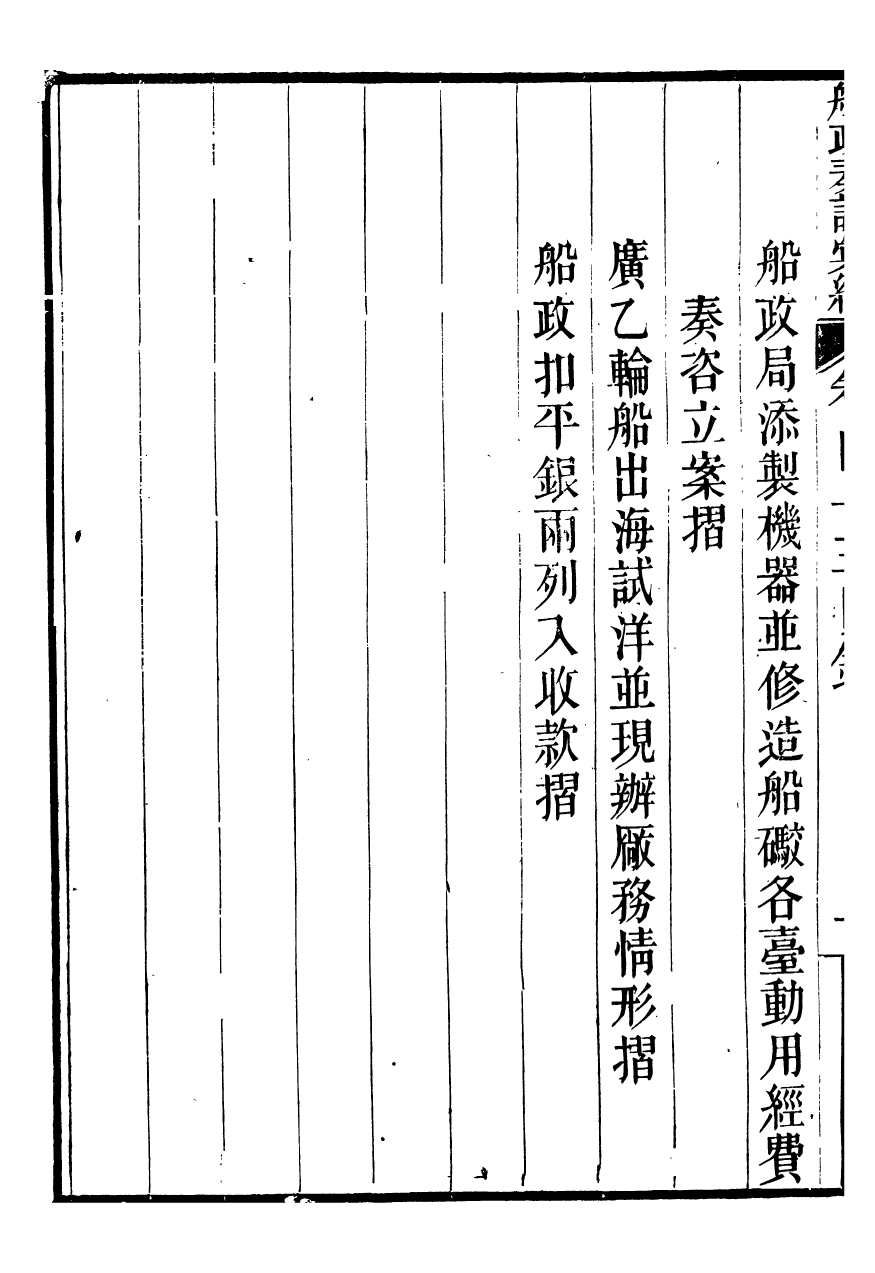 船政局添製機器並修造船礮各臺動用經費
奏咨立案摺
廣乙輪船出海試洋並現辦廠務情形摺
船政扣平銀兩列入收款摺